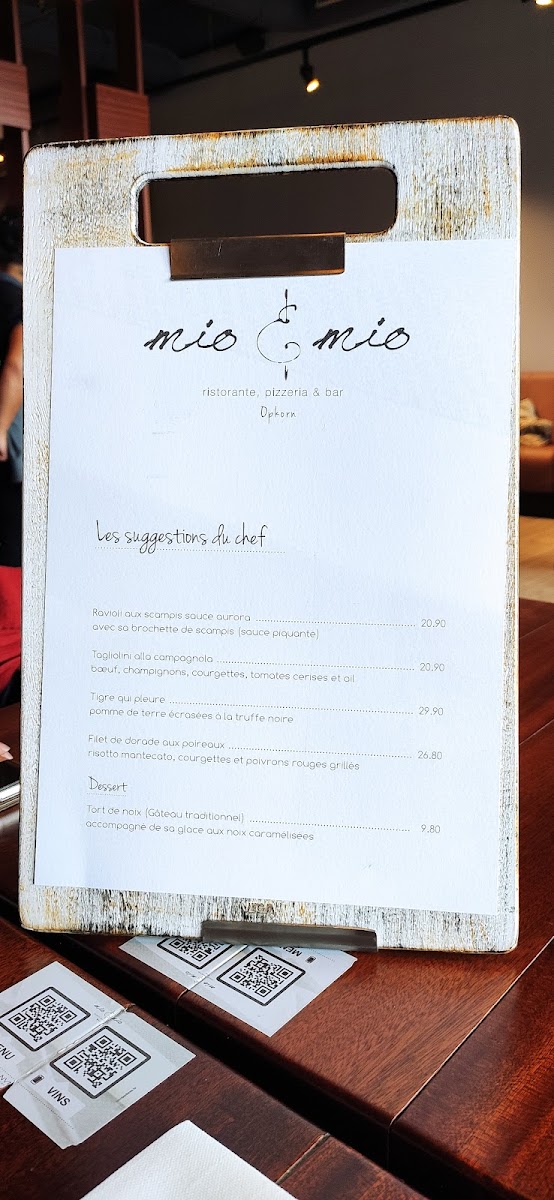 mio & mio
ristorante, pizzeria & bar
Opkorn
Les suggestions du chef
Ravioli aux scampis sauce aurora 20,90
avec sa brochette de scampis (sauce piquante)
Tagliolini alla campagnola 20,90
bœuf, champignons, courgettes, tomates cerises et ail
Tigre qui pleure 29,90
pomme de terre écrasées à la truffe noire
Filet de dorade aux poireaux 26,80
risotto mantecato, courgettes et poivrons rouges grillés
Dessert
Tort de noix (Gâteau traditionnel) 9,80
accompagné de sa glace aux noix caramélisées
VINS